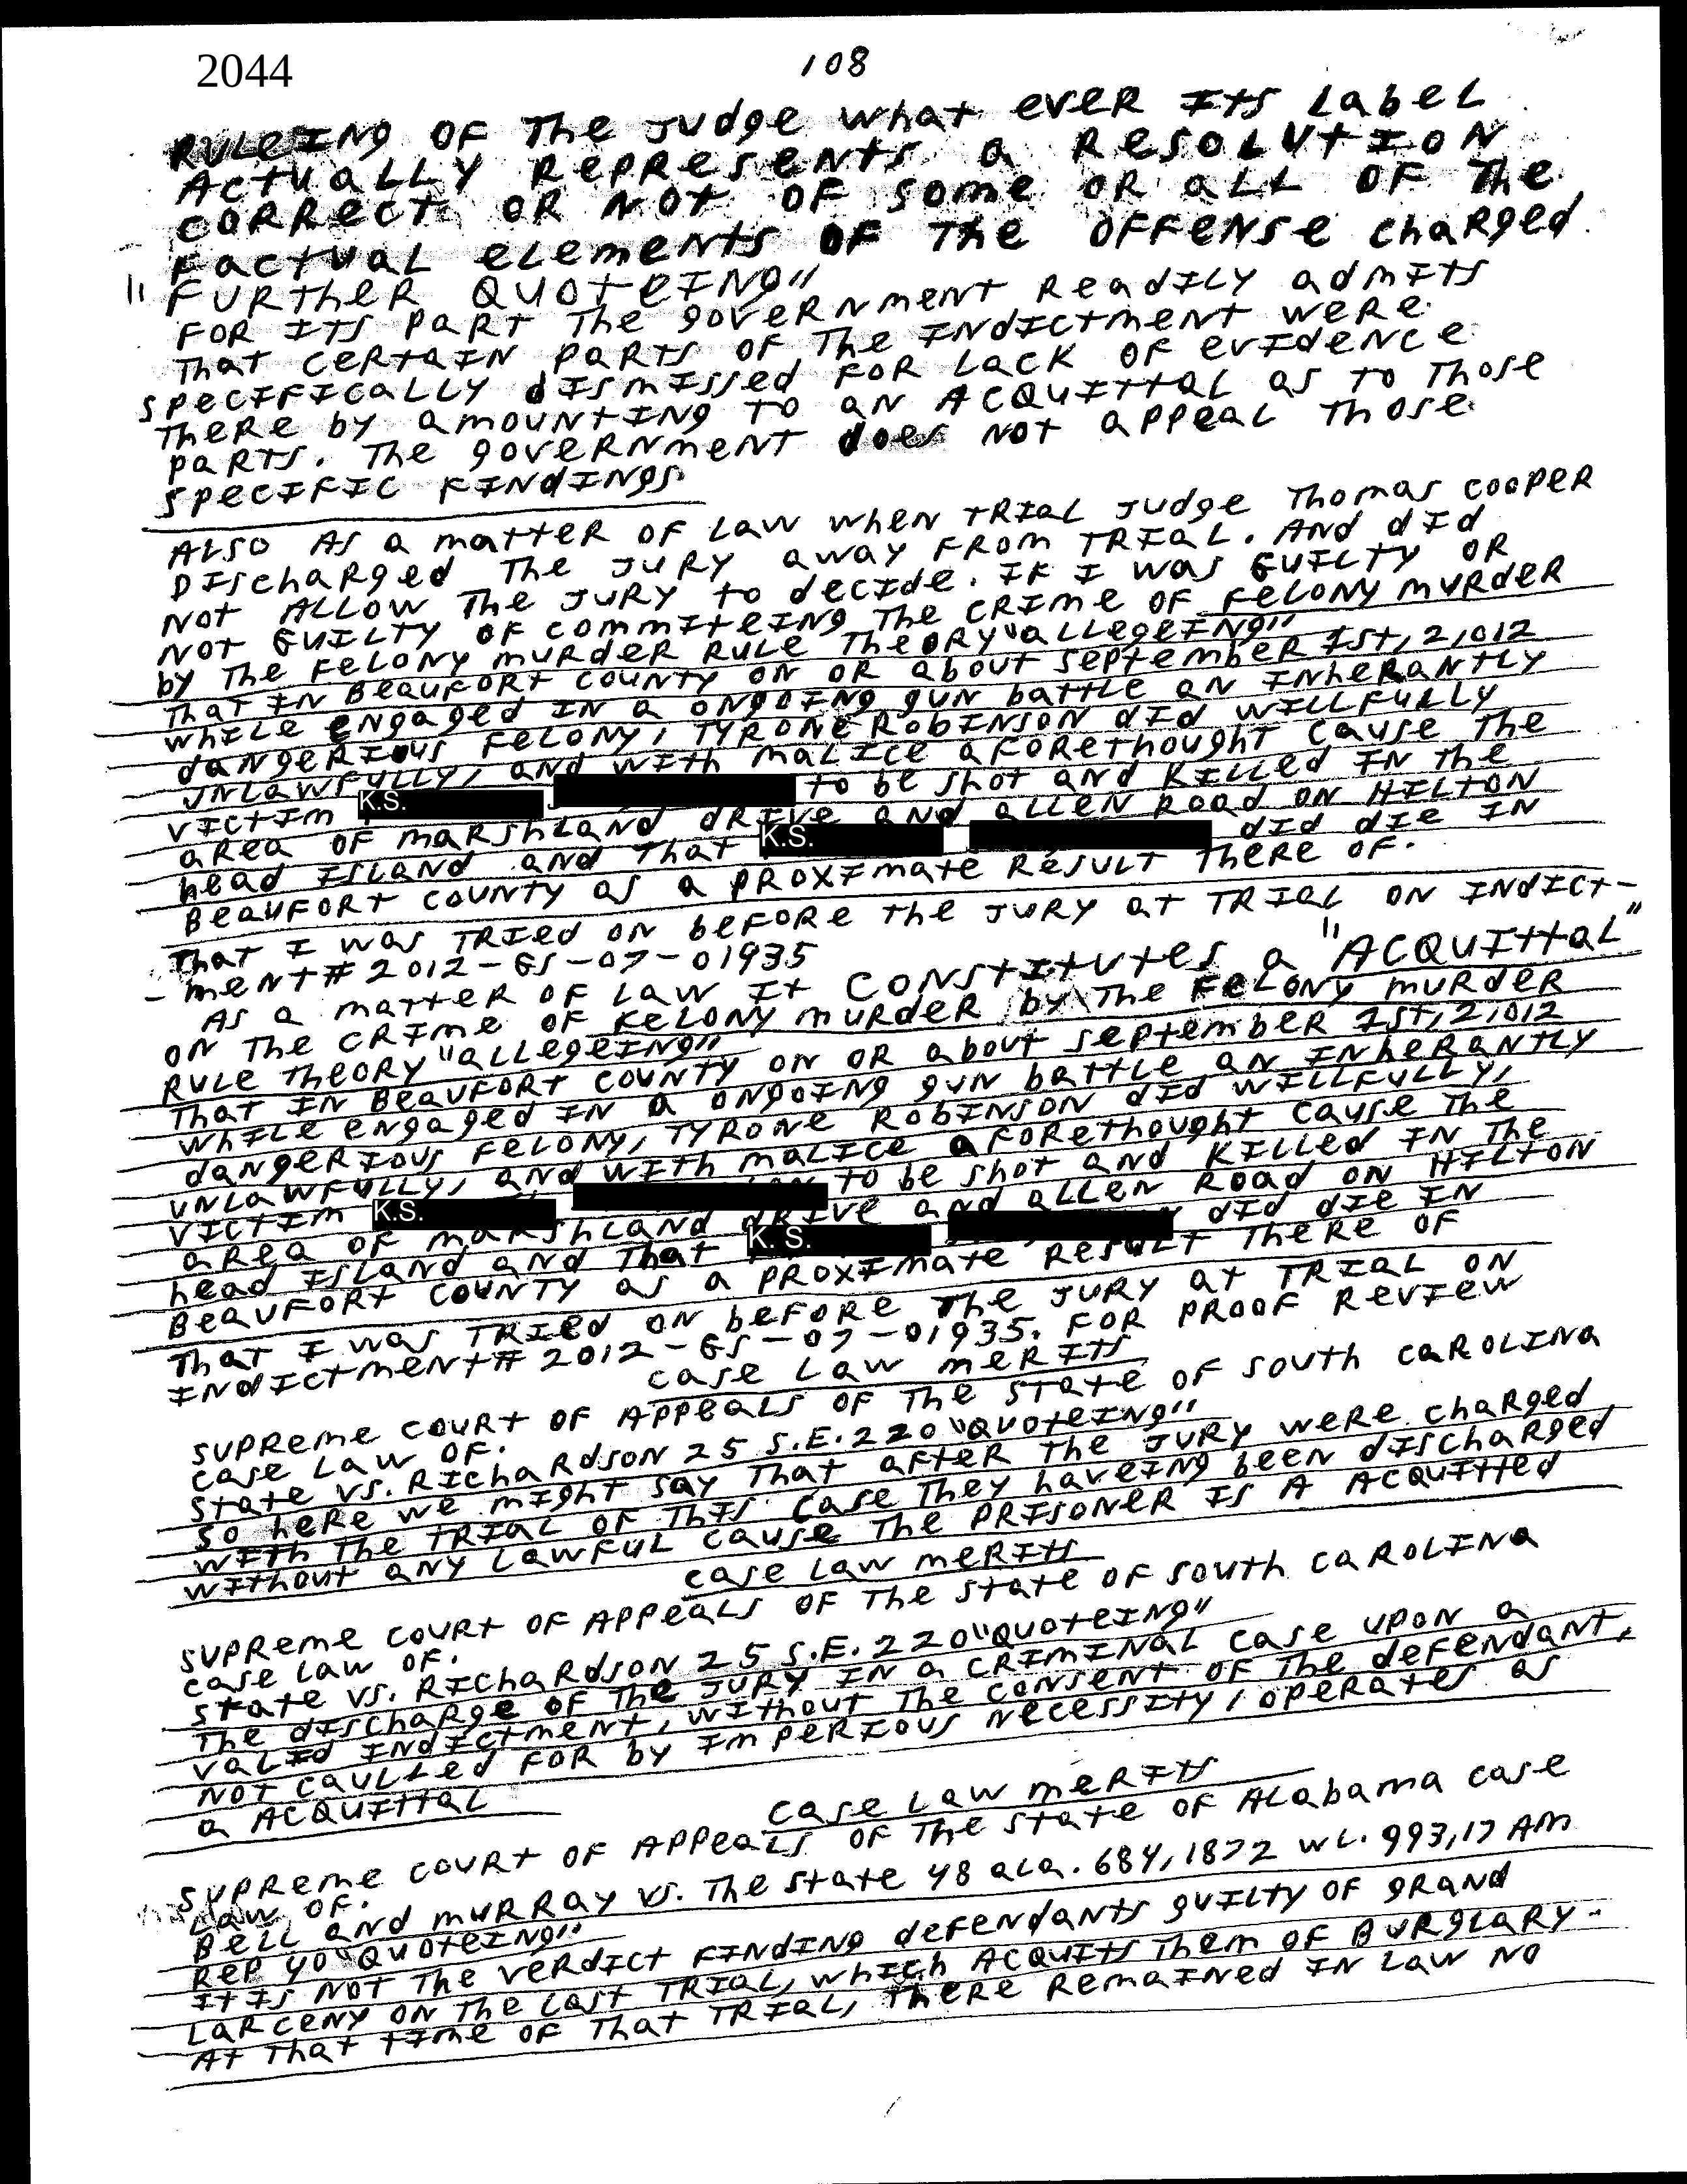 2044
108
RULEING OF The JUdge what eveR Its LabeL
ActUaLLY RepResents a ResOLUtION
CORRect OR NOt OF some OR aLL OF The
Factual elements OF The OFFense chaRged
"FURtheR QUOteING"
FOR Its paRt The goveRNment ReadILY admIts
That ceRtaIN paRts OF The INdIctment weRe
specIFIcaLLY dIsmIssed FOR Lack OF evIdeNce
TheRe by amOUNtINg TO aN ACQUIttaL as TO Those
paRts. The goveRNmeNt does NOt appeaL those
specIFIc FINdINgs
ALSO As a matteR OF Law wheN tRIaL Judge Thomas cOOpeR
DIschaRged The JURY away FROm TRIaL. ANd dId
NOt ALLOW The JURY to decIde. IF I was GUILTY OR
NOt GUILTY OF cOmmIteINg The cRIme OF FeLONY mURdeR
by The FeLONY mURdeR RULe TheORY "aLLegeINg"
That IN BeaUFORt cOUNTY ON OR abOUt septembeR 1st, 2,012
whILe eNgaged IN a ONgOINg gUN battLe aN INheRaNtLY
daNgeRIOUs FeLONY, TYRONe RObINsON dId wILLFULLY
UNLawFULLY, aNd wIth maLIce aFORethOUght caUse The
vIctIm K.S. to be shOt aNd KILLed IN The
aRea OF maRshLaNd dRIve aNd aLLeN ROad ON HILtON
head IsLaNd aNd that K.S. dId dIe IN
BeaUFORt cOUNTY as a pROxImate ResULt TheRe OF.
That I was TRIed ON beFORe the JURY at TRIaL ON INdIct-
-meNt# 2012-GS-07-01935
As a matteR OF Law It CONstItUtes a "ACQUIttaL"
ON The cRIme OF FeLONY mURdeR by The FeLONY mURdeR
RULe TheORY "aLLegeINg"
That IN BeaUFORt cOUNTY ON OR abOUt septembeR 1st, 2,012
whILe eNgaged IN a ONgOINg gUN battLe aN INheRaNtLY
daNgeRIOUs FeLONY, TYRONe RObINsON dId wILLFULLY,
UNLawFULLY, aNd wIth maLIce aFORethOUght caUse The
vIctIm K.S. to be shOt aNd KILLed IN The
aRea OF maRshLaNd dRIve aNd aLLeN ROad ON HILtON
head IsLaNd aNd that K. S. dId dIe IN
BeaUFORt cOUNTY as a pROxImate ResULt TheRe OF
That I was TRIed ON beFORe The JURY at TRIaL ON
INdIctmeNt# 2012-GS-07-01935. FOR pROOF RevIew
case Law meRIts
sUpReme cOURt OF AppeaLs OF The state OF sOUth caROLINa
case Law OF.
state vs. RIchaRdsON 25 S.E. 220 "QUOteINg"
sO heRe we mIght say That aFteR The JURY weRe chaRged
wIth The tRIaL OF thIs case they haveINg beeN dIschaRged
wIthOUt aNY LawFUL caUse The pRIsONeR Is A AcQUItted
case Law meRIts
sUpReme cOURt OF AppeaLs OF The state OF sOUth caROLINa
case Law OF.
state vs. RIchaRdsON 25 S.E. 220 "QUOteINg"
The dIschaRge OF The JURY IN a cRImINaL case UpON a
vaLId INdIctmeNt, wIthOUt The cONseNt OF The deFeNdaNt,
NOt caULLed FOR by ImpeRIOUs NecessIty, OpeRates as
a AcQUIttaL
case Law meRIts
sUpReme cOURt OF AppeaLs OF The state OF ALabama case
Law OF.
BeLL aNd mURRay vs. The state 48 aLa. 684, 1872 WL. 993, 17 Am
Rep 40 "QUOteINg"
It Is NOt The veRdIct FINdINg deFeNdaNts gUILty OF gRaNd
LaRceNY ON The Last TRIaL, whIch AcQUIts Them OF BURgLaRY-
At That tIme OF That TRIaL, TheRe RemaINed IN Law NO